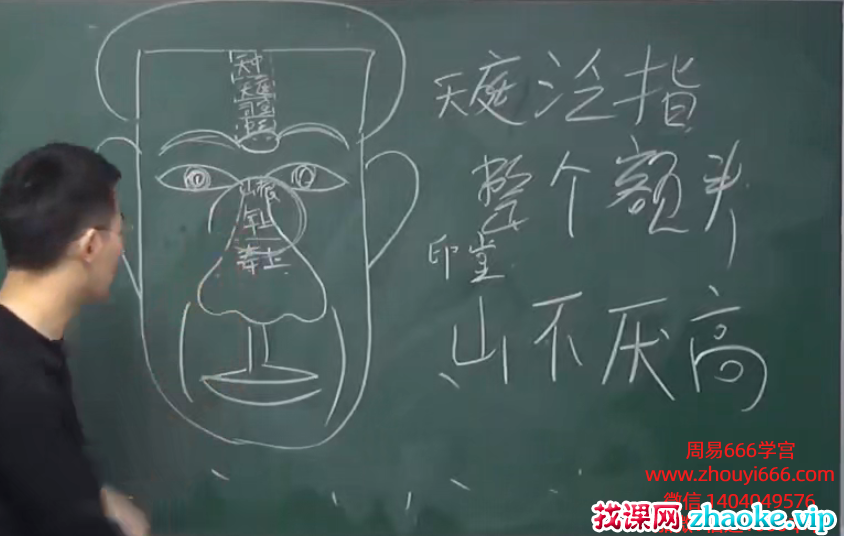 天中
天庭
司空
中正
山根
年上
寿上
天庭泛指
整个额头
印堂
山不厌高
周易666学宫
www.zhouyi666.com
微信 1404049576
找课网 zhaoke.vip